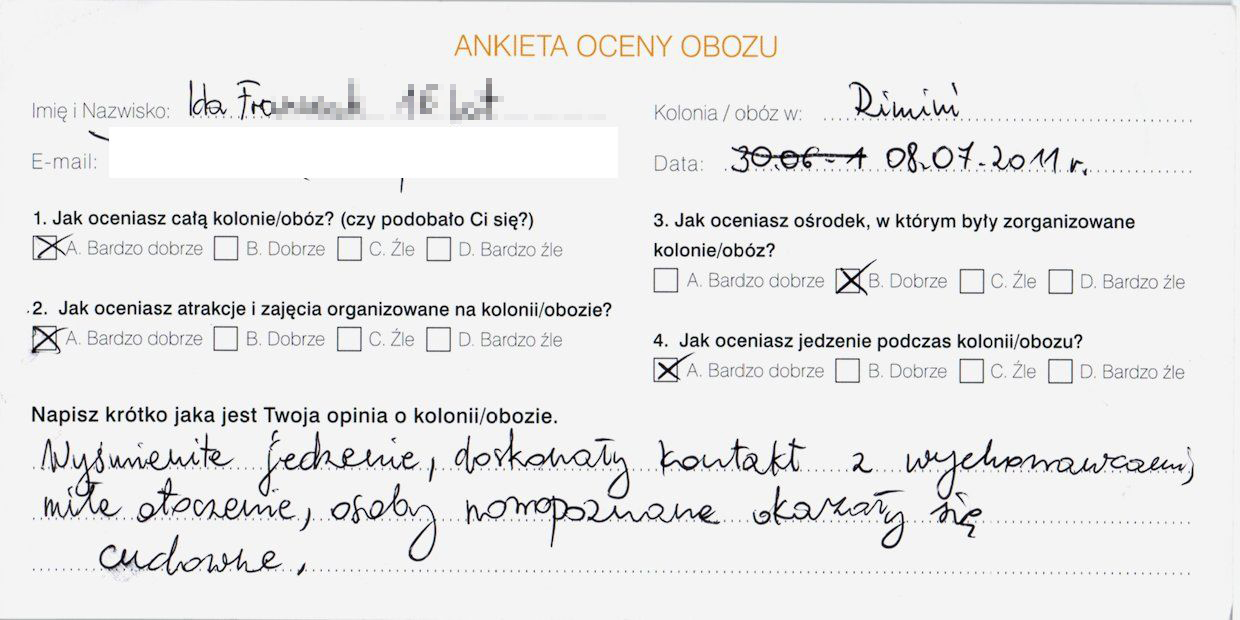 ANKIETA OCENY OBOZU
Imię i Nazwisko: Ida
E-mail:
Kolonia / obóz w: Rimini
Data: 30.06-1 08.07.2011 r.
1. Jak oceniasz całą kolonie/obóz? (czy podobało Ci się?)
A. Bardzo dobrze B. Dobrze C. Źle D. Bardzo źle
2. Jak oceniasz atrakcje i zajęcia organizowane na kolonii/obozie?
A. Bardzo dobrze B. Dobrze C. Źle D. Bardzo źle
3. Jak oceniasz ośrodek, w którym były zorganizowane
kolonie/obóz?
A. Bardzo dobrze B. Dobrze C. Źle D. Bardzo źle
4. Jak oceniasz jedzenie podczas kolonii/obozu?
A. Bardzo dobrze B. Dobrze C. Źle D. Bardzo źle
Napisz krótko jaka jest Twoja opinia o kolonii/obozie.
Wyśmienite jedzenie, doskonały kontakt z wychowawcami,
miłe otoczenie, osoby nowopoznane okazały się
cudowne.